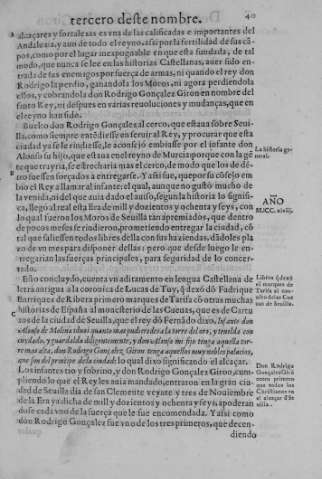 tercero deste nombre. 40
alcaçares y fortalezas es vna de las calificadas e importantes del
Andaluzia, y aun de todo el reyno, assi por la fertilidad de sus cã
pos, como por el lugar inexpugnable en que esta fundada, de tal
modo, que nunca se lee en las historias Castellanas, auer sido en-
trada de sus enemigos por fuerça de armas, ni quando el rey don
Rodrigo la perdio, ganandola los Moros, ni agora perdiendola
ellos, y cobrandola don Rodrigo Gonçalez Giron en nombre del
santo Rey, ni despues en varias reuoluciones y mudanças, que en
el reyno han sido.
Buelto don Rodrigo Gonçalez al cerco, que estaua sobre Seui-
lla, como siempre entẽdiesse en seruir al Rey, y procurar que esta
ciudad ya se le rindiesse, le aconsejó embiasse por el infante don
Alonso su hijo, que estaua en el reyno de Murcia porque con la gẽ
te que trayria, se estrecharia mas el cerco, de modo que los de dẽ-
tro fuessen forçados a entregarse. Y assi fue, que por su cõsejo em
bió el Rey a llamar al infante: el qual, aunque no gustó mucho de
la venida, ni del que auia dado el auiso, segun la historia lo signifi-
ca, llegó al real desta Era de mill y dozientos y ochenta y seys, con
lo qual fueron los Moros de Seuilla tan apremiados, que dentro
de pocos meses se rindieron, prometiendo entregar la ciudad, cõ
tal que saliessen todos libres della con sus haziendas, dãdoles pla
zo de vn mes para disponer dellas: pero que desde luego le en-
tregarian las fuerças principales, para seguridad de lo concer-
tado.
Esto concluydo, cuenta vn aditamento en lengua Castellana de
letra antigua a la coronica de Lucas de Tuy, q̃ dexó dõ Fadrique
Enrriquez de Ribera primero marques de Tarifa cõ otras muchas
historias de España al monasterio de las Cueuas, que es de Cartu
xos de la ciudad de Seuilla, que el rey dõ Fernãdo dixo,
ciudad:
lo qual dixo significando el alcaçar.
Los infantes tio y sobrino, y don Rodrigo Gonçalez Giron, cum-
pliendo lo que el Rey les auia mandado, entraron en la gran ciu-
dad de Seuilla dia de san Clemente veynte y tres de Nouiembre
de la Era ya dicha de mill y dozientos y ochenta y seys, apoderan
dose cada vno de la fuerça que le fue encomendada. Y assi como
don Rodrigo Gonçalez fue vno de los tres primeros, que decen-
diendo
La historia ge
neral.
AÑO
M.CC. xlviij.
Libros q̃ dexó
el marques de
Tarifa al con-
uento de las Cue
uas de Seuilla.
Don Rodrigo
Gonçalez Girõ